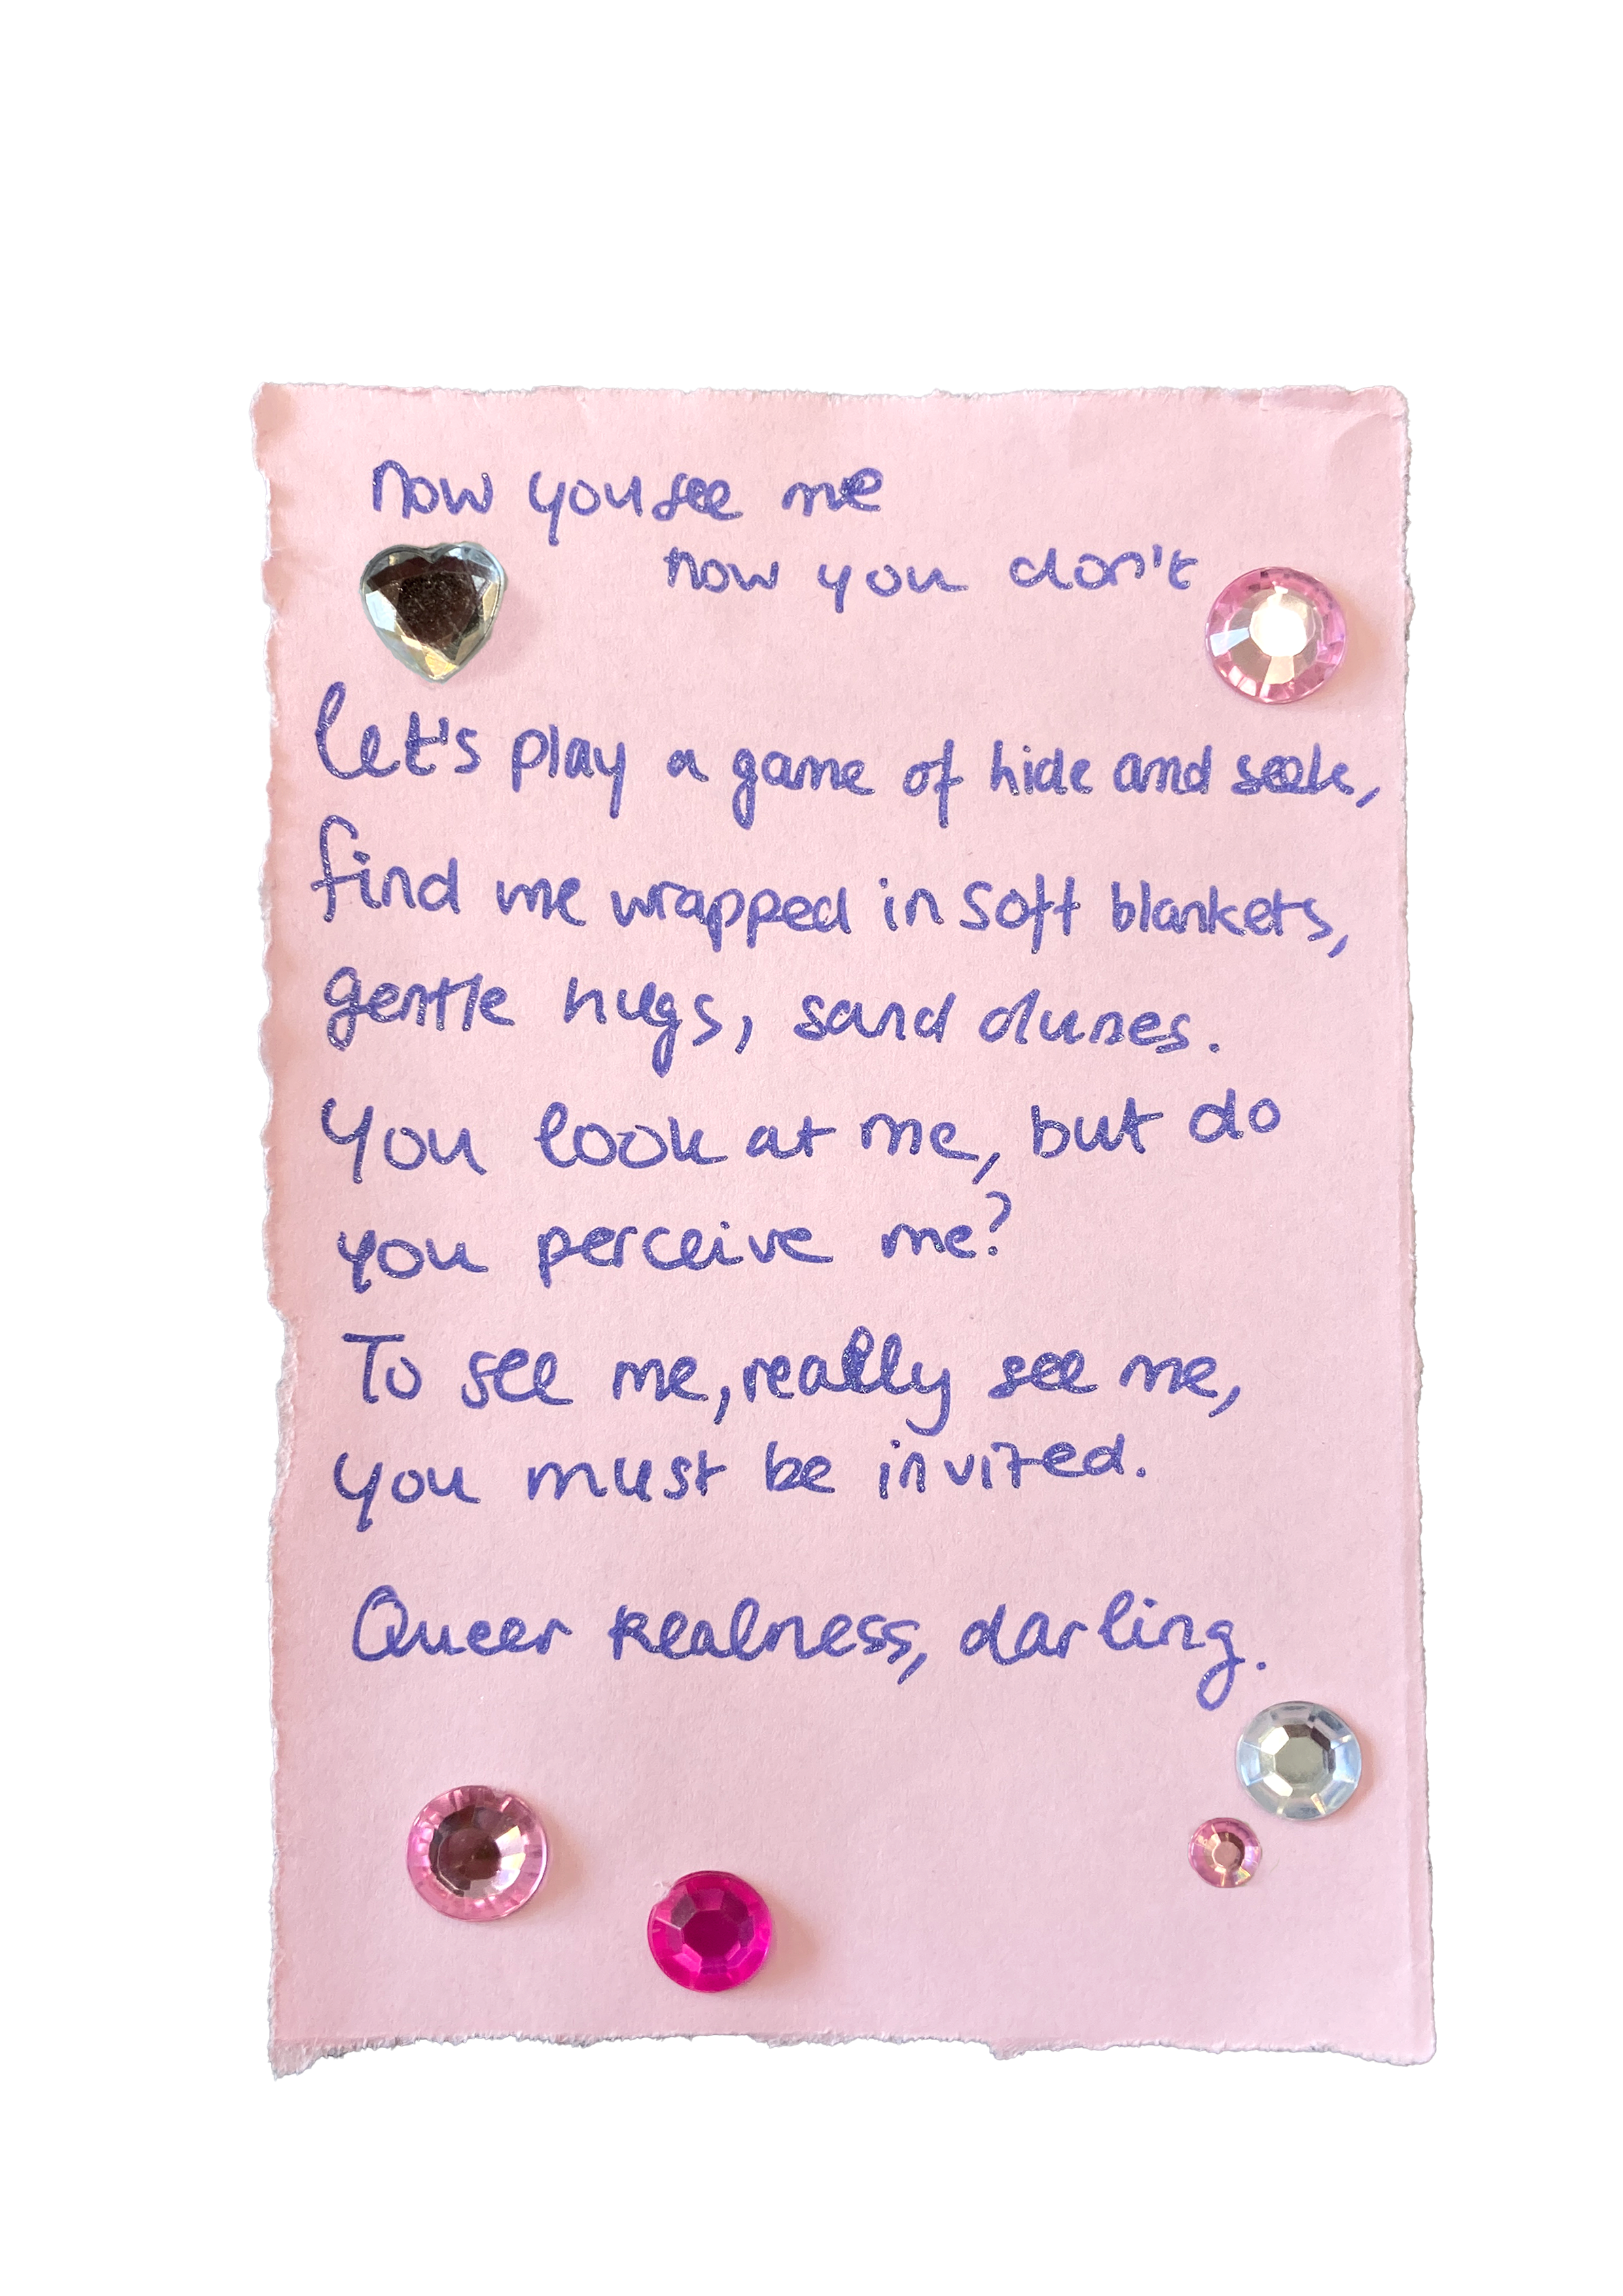 now you see me
now you don't
let's play a game of hide and seek,
find me wrapped in soft blankets,
gentle hugs, sand dunes.
You look at me, but do
you perceive me?
To see me, really see me,
you must be invited.
Queer Realness, darling.